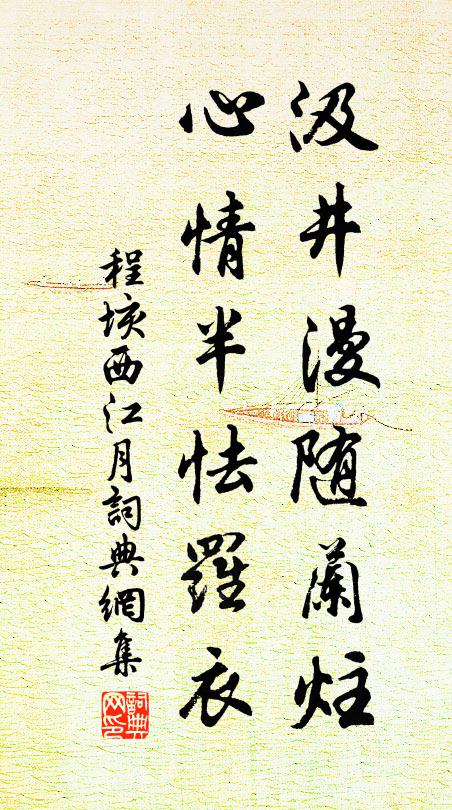 汲井漫随蘭炷
心情半怯羅衣
程垓西江月詞典網集
詞典网印